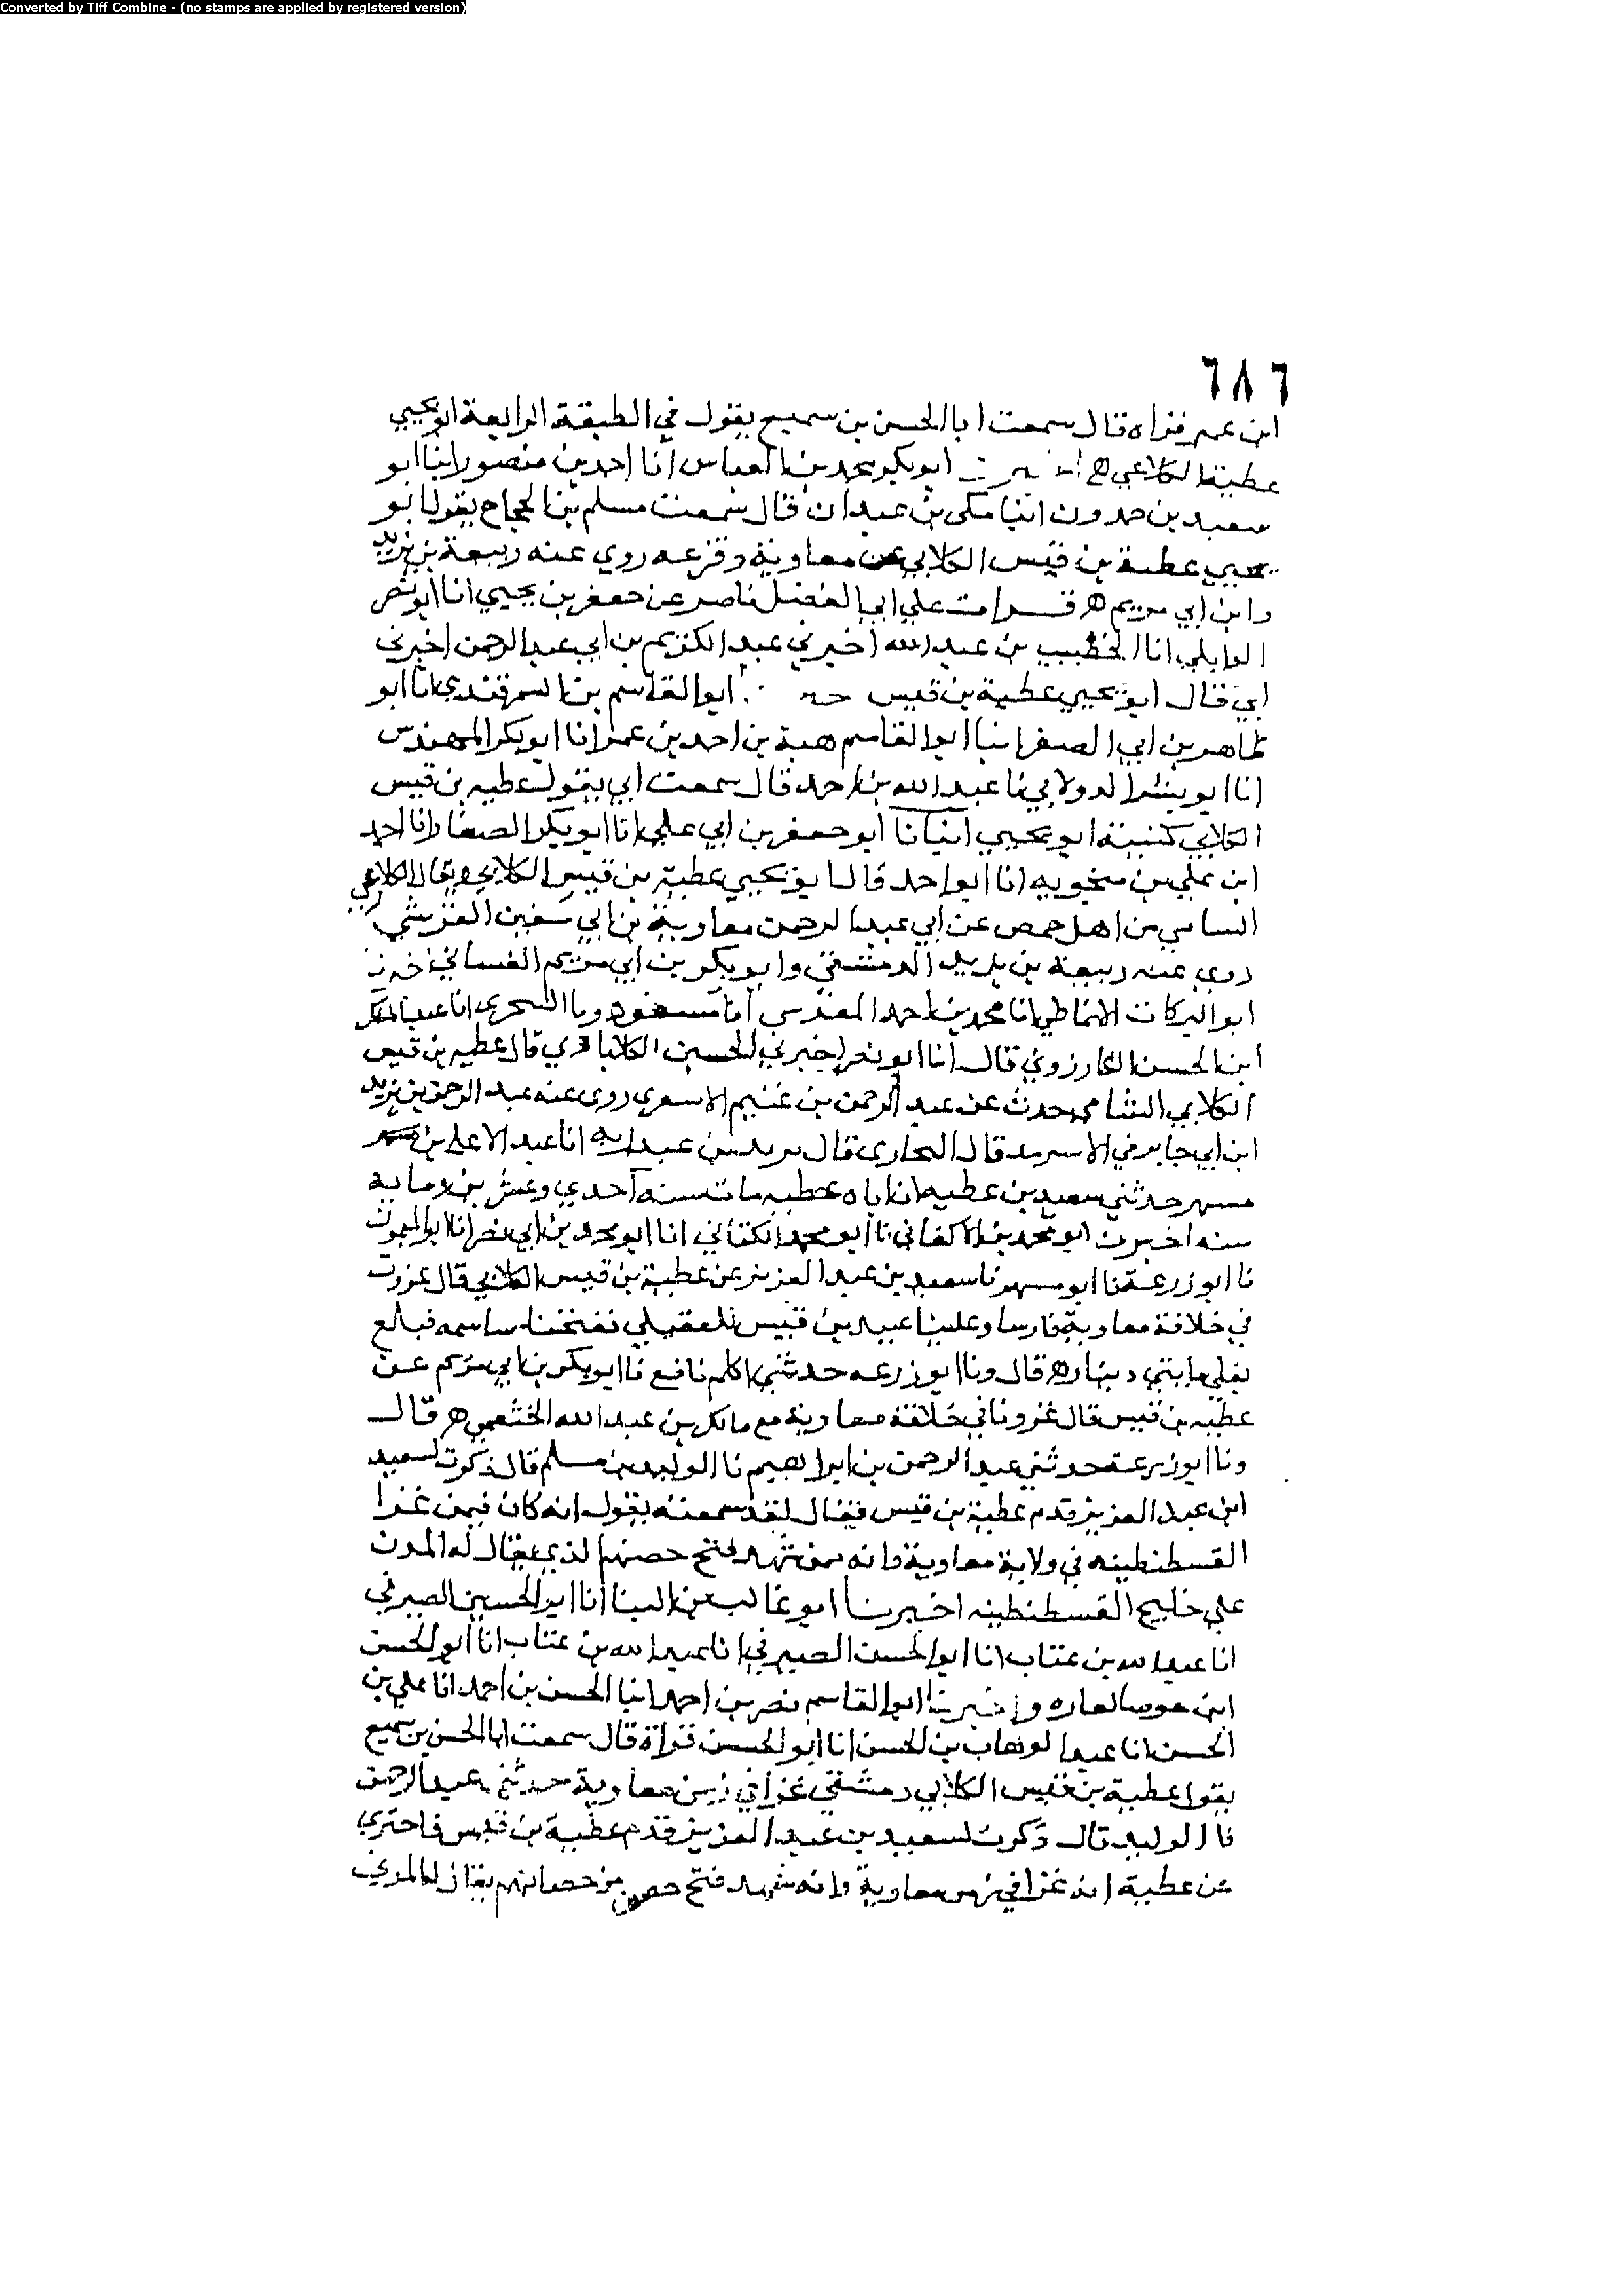 Converted by Tiff Combine - (no stamps are applied by registered version)
٦٨٦
ابن عمير قراه قال سمعت ابا الحسن بن سميع يقول في الطبقة الرابعة ابو يحيي
عطية الكلاعي ه ابو بكر محمد بن العباس انا احمد بن منصور انبا ابو
سعيد بن حمدون انبا مكى بن عبدان قال سمعت مسلم بن الحجاج يقول ابو
يحيي عطية بن قيس الكلابي عن معاوية وقزعه روي عنه ربيعة بن يزيد
وابن ابي مريم ه قرات علي ابي الفضل ناصر عن جعفر بن يحيي انا ابو نصر
الوايلي انا الخطيب بن عبد الله اخبرني عبد الكريم بن ابي عبد الرحمن اخبرني
ابي قال ابو يحيي عطية بن قيس ابو القاسم بن السمرقندي انا ابو
طاهر بن ابي الصقر انبا ابو القاسم هبة بن احمد بن عمر انا ابو بكر المهندس
انا ابو بشر الدولابي نا عبد الله بن احمد قال سمعت ابي يقول عطيه بن قيس
الكلابي كنيته ابو يحيي انبانا ابو جعفر بن ابي علي انا ابو بكر الصفار انا احمد
ابن علي بن منجويه انا ابو احمد قال ابو يحيي عطية بن قيس الكلابي ويقال الكلاعي
السامي من اهل حمص عن ابي عبد الرحمن معاوية بن ابي سفين القرشي
روي عنه ربيعة بن يزيد الدمشقي وابو بكر بن ابي مريم الغساني
ابو البركات الانماطي انا محمد بن احمد المقدسي انا مسعود السجزي انا عبد الملك
ابن الحسن الكارزوني قال انا ابو نصر اخبرني الحسين الكلاباذي قال عطيه بن قيس
الكلابي الشامي حدث عن عبد الرحمن بن غنيم الاسعري روى عنه عبد الرحمن بن يزيد
ابن ابي جابر في الاسربه قال البخاري قال يزيد بن عبد ربه انا عبد الاعلي بن
مسهر حدثني سعيد بن عطيه ان اباه عطيه مات سنه احدي وعشرين ومايه
سنه اخبرنا ابو محمد بن الاكفاني نا ابو محمد الكتاني انا ابو محمد بن ابي نصر انا ابو الميمون
نا ابو زرعة نا ابو مسهر نا سعيد بن عبد العزيز عن عطية بن قيس الكلابي قال غزوت
في خلافة معاوية فارسا وعلينا عبيد بن قيس العقيلي ففتحنا فبالغ
بغلي مايتي دينار ه قال ونا ابو زرعه حدثني نافع نا ابو بكر بن ابي مريم عن
عطيه بن قيس قال غزونا في خلافة معاوية مع مالك بن عبد الله الخثعمي ه قال
ونا ابو زرعة حدثني عبد الرحمن بن ابراهيم نا الوليد بن مسلم قال ذكرت لسعيد
ابن عبد العزيز قدم عطية بن قيس فقال لقد سمعته يقول انه كان فيمن غزا
القسطنطينه في ولاية معاوية وانه ممن شهد فتح حصنهم الذي يقال له المدن
علي خليج القسطنطينه اخبرنا ابو غالب بن البنا انا ابو الحسين الصيرفي
انا عبيد الله بن عتاب انا ابو الحسن الصيرفي انا عبيد الله بن عتاب انا ابو الحسن
ابن واخبرنا ابو القاسم نصر بن احمد انبا الحسن بن احمد انا علي بن
الحسن انا عبد الوهاب بن الحسن انا ابو الحسن قراة قال سمعت ابا الحسن بن سميع
يقول عطية بن قيس الكلابي دمشقي غزا في زمن معاوية حدثني عبد الرحمن
نا الوليد قال ذكرت لسعيد بن عبد العزيز قدم عطية بن قيس فاخبرني
عن عطية انه غزا في زمن معاوية وانه شهد فتح حصن من حصانهم يقال له المدي